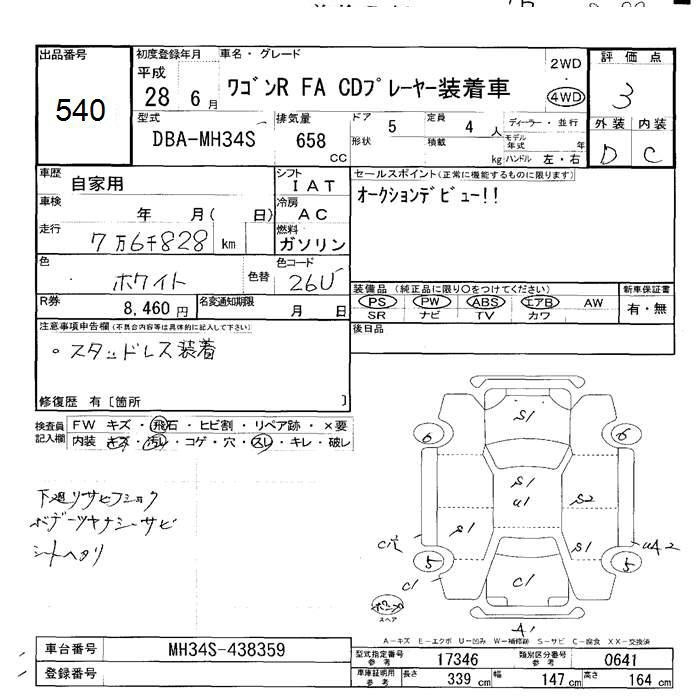 出品番号 540
初度登録年月 平成 28 6 月
車名・グレード ワゴンR FA CDプレーヤー装着車
2WD ・ 4WD
評価点 3
型式 DBA-MH34S
排気量 658 CC
ドア 5 定員 4 人
形状 積載 kg
ディーラー・並行
モデル年式 年
ハンドル 左・右
外装 内装
D C
車歴 自家用
シフト IAT
車検 年 月( 日)
冷房 AC
走行 7万6千828 km
燃料 ガソリン
色 ホワイト 色替
色コード 26U
R券 8,460 円
名変通知期限 月 日
セールスポイント(正常に機能するものに限ります)
オークションデビュー!!
装備品 (純正品に限り〇をつけてください)
PS PW ABS エアB AW
SR ナビ TV カワ
新車保証書 有・無
後日品
注意事項申告欄(不具合内容等は具体的に記入して下さい)
。スタッドレス装着
修復歴 有〔箇所 〕
検査員記入欄
FW キズ・飛石・ヒビ割・リペア跡・×要
内装 キズ・汚レ・コゲ・穴・スレ・キレ・破レ
下廻りサビフショク
シートヘタリ
S1
6 6
S1
U1
S2
S1 S1
C穴 UA2
5 5
C1
C1
スペア
A1
A-キズ E-エクボ U-凹み W-補修跡 S-サビ C-腐食 XX-交換済
車台番号 MH34S-438359
登録番号
型式指定番号 参考 17346
類別区分番号 参考 0641
車庫証明用 参考 長さ 339 cm 幅 147 cm 高さ 164 cm